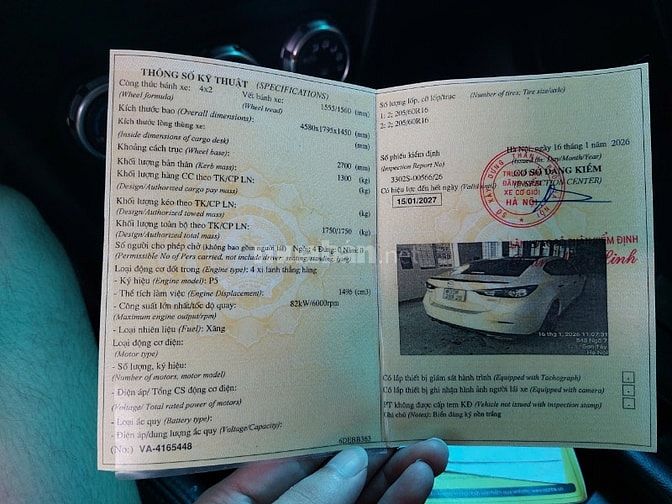 THÔNG SỐ KỸ THUẬT (SPECIFICATIONS)
Công thức bánh xe: 4x2 Vết bánh xe: 1555/1560 (mm)
(Wheel formula) (Wheel tread)
Kích thước bao (Overall dimensions): 4580x1795x1450 (mm)
Kích thước lòng thùng xe: (mm)
(Inside dimensions of cargo desk)
Khoảng cách trục (Wheel base): 2700 (mm)
Khối lượng bản thân (Kerb mass): 1300 (kg)
Khối lượng hàng CC theo TK/CP LN: (kg)
(Design/Authorized cargo pay mass)
Khối lượng kéo theo TK/CP LN: (kg)
(Design/Authorized towed mass)
Khối lượng toàn bộ theo TK/CP LN: 1750/1750 (kg)
(Design/Authorized total mass)
Số người cho phép chở (không bao gồm người lái) Ngồi: 4 Đứng: 0 Nằm: 0
(Permissible No of Pers carried, not include driver
Loại động cơ đốt trong (Engine type): 4 xi lanh thẳng hàng
- Ký hiệu (Engine model): P5
- Thể tích làm việc (Engine Displacement): 1496 (cm3)
- Công suất lớn nhất/tốc độ quay: 82kW/6000rpm
(Maximum engine output/rpm)
- Loại nhiên liệu (Fuel): Xăng
Loại động cơ điện:
(Motor type)
- Số lượng, ký hiệu:
(Number of motors, motor model)
- Điện áp/ Tổng CS động cơ điện:
(Voltage/ Total rated power of motors)
- Loại ắc quy (Battery type):
- Điện áp/dung lượng ắc quy (Voltage/Capacity):
(No:) VA-4165448 6DEBB353
Số lượng lốp, cỡ lốp/trục (Number of tires; Tire size/axle)
1: 2; 205/60R16
2: 2; 205/60R16
Hà Nội, ngày 16 tháng 1 năm 2026
Số phiếu kiểm định (Issued on: Day/Month/Year)
(Inspection Report No) CƠ SỞ ĐĂNG KIỂM
3302S-00566/26 (INSPECTION CENTER)
Có hiệu lực đến hết ngày
15/01/2027
TRUNG TÂM
ĐĂNG KIỂM
XE CƠ GIỚI
HÀ NỘI
KIỂM ĐỊNH
16 thg 1, 2026 11:07:31
Sơn Tây
Hà Nội
Có lắp thiết bị giám sát hành trình (Equipped with Tachograph)
Có lắp thiết bị ghi nhận hình ảnh người lái xe (Equipped with camera)
PT không được cấp tem KĐ (Vehicle not issued with inspection stamp)
Ghi chú (Notes): Biển đăng ký nền trắng